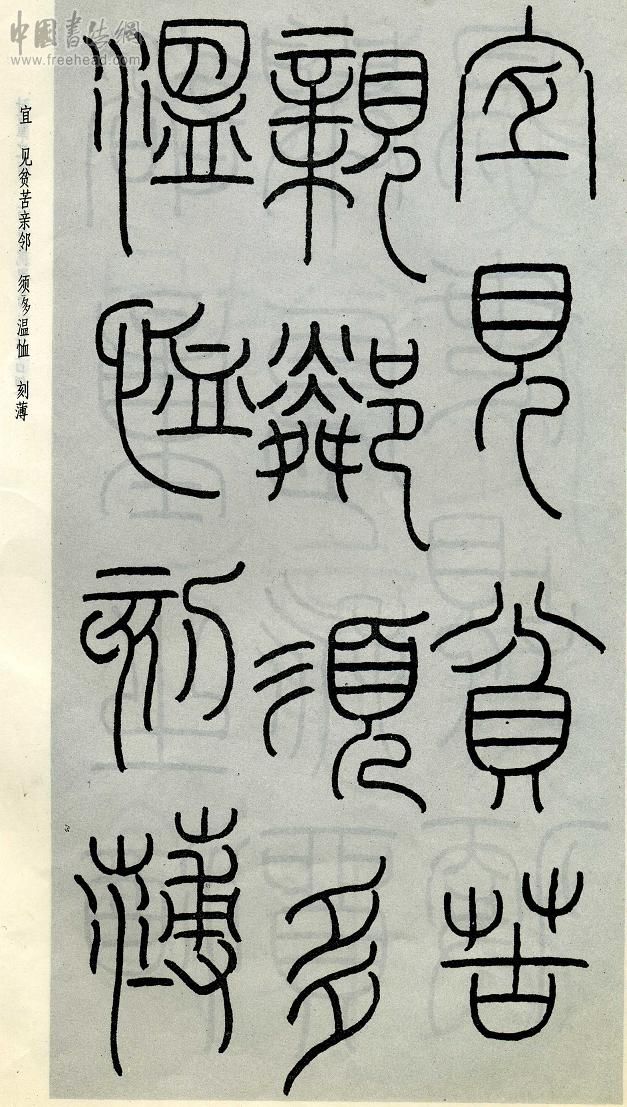 宜見貧苦
親鄰須多
温恤刻薄
宜 见贫苦亲邻 须多温恤 刻薄
中国书法網
www.freehead.com